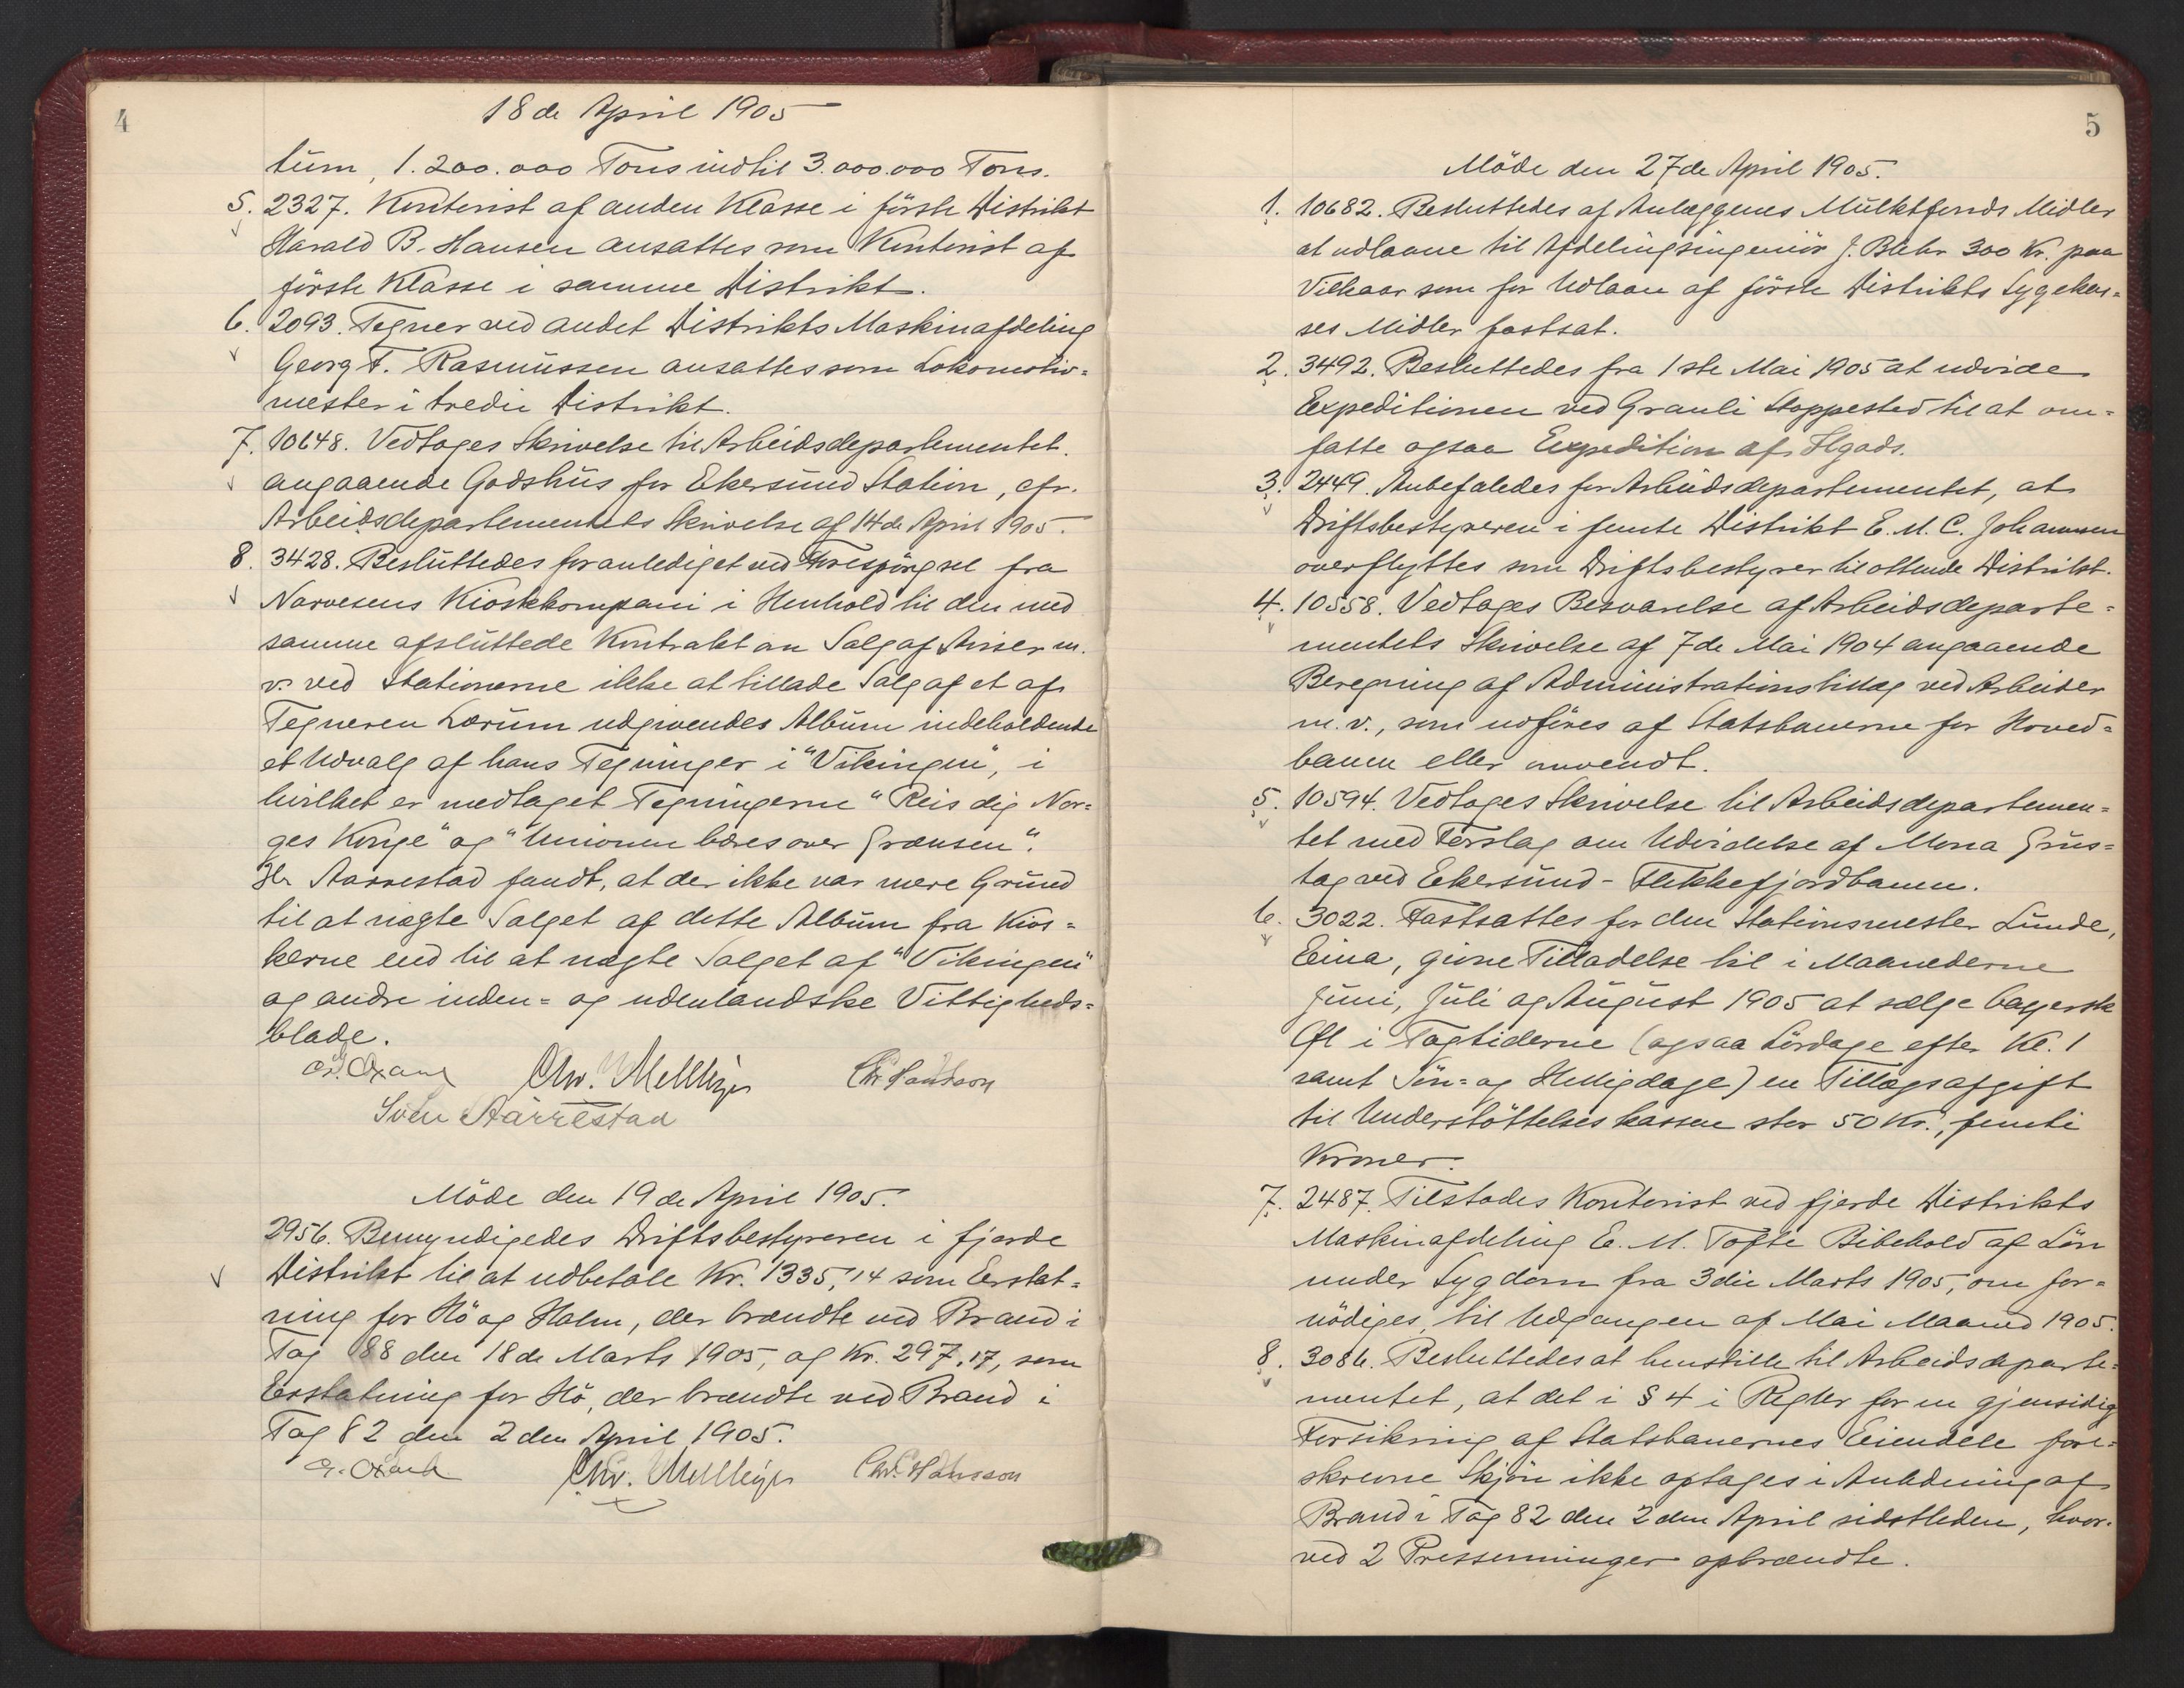 4
18de April 1905
tum, 1.200.000 Tons indtil 3.000.000 Tons.
5. 2327. Kontorist af anden Klasse i første Distrikt
Harald B. Hansen ansattes som Kontorist af
første Klasse i samme Distrikt.
6. 2093. Tegner ved andet Distrikts Maskinafdeling
Georg F. Rasmussen ansattes som Lokomotiv=
mester i tredie Distrikt.
7. 10648. Vedtoges Skrivelse til Arbeidsdepartementet.
angaaende Godshus for Ekersund Station, cfr.
Arbeidsdepartementets Skrivelse af 14de April 1905.
8. 3428. Besluttedes foranlediget ved Forespørgsel fra
Narvesens Kioskkompani i Henhold til den med
samme afsluttede Kontrakt om Salg af Aviser m.
v. ved Stationerne ikke at tillade Salg af et af
Tegneren Lærum udgivendes Album indeholdende
et Udvalg af hans Tegninger i "Vikingen", i
hvilket er medtaget Tegningerne "Reis dig Nor=
ges Konge" og "Unionen bæres over Grænsen".
Hr Aarrestad fandt, at der ikke var mere Grund
til at nægte Salget af dette Album fra Kios=
kerne end til at nægte Salget af "Vikingen"
og andre inden= og udenlandske Vittigheds=
blade.
Chr. Hansson
Sven Aarrestad
Møde den 19de April 1905.
2956. Bemyndigedes Driftsbestyreren i fjerde
Distrikt til at udbetale Kr. 1335,14 som Erstat=
ning for Hø og Halm, der brændte ved Brand i
Tog 88 den 18de Marts 1905, og Kr. 297,17, som
Erstatning for Hø, der brændte ved Brand i
Tog 82 den 2den April 1905.
Chr. Hansson
5
Møde den 27de April 1905.
1. 10682. Besluttedes af Anlæggenes Mulktfonds Midler
at udlaane til Afdelingsingeniør J. Bæhr 300 Kr. paa
Vilkaar som for Udlaan af første Distrikts Sygekas=
ses Midler fastsat.
2. 3492. Besluttedes fra 1ste Mai 1905 at udvide
Expeditionen ved Granli Stoppested til at om=
fatte ogsaa Expedition af Ilgods.
3. 2449. Anbefaledes for Arbeidsdepartementet, at
Driftsbestyreren i femte Distrikt E. M. C. Johannsen
overflyttes som Driftsbestyrer til ottende Distrikt.
4. 10558. Vedtoges Besvarelse af Arbeidsdeparte=
mentets Skrivelse af 7de Mai 1904 angaaende
Beregning af Administrationstillæg ved Arbeider
m.v., som udføres af Statsbanerne for Hoved=
banen eller omvendt.
5. 10594. Vedtoges Skrivelse til Arbeidsdepartemen=
tet med Forslag om Udvidelse af Mona Grus=
tag ved Ekersund-Flekkefjordbanen.
6. 3022. Fastsattes for den Stationsmester Lunde,
Eina, givne Tilladelse til i Maanederne
Juni, Juli og August 1905 at sælge bayersk
Øl i Togtiderne (ogsaa Lørdage efter Kl. 1
samt Søn= og Helligdage) en Tillægsafgift
til Understøttelseskassen stor 50 Kr., femti
Kroner.
7. 2487. Tilstodes Kontorist ved fjerde Distrikts
Maskinafdeling E. M. Tofte Bibehold af Løn
under Sygdom fra 3die Marts 1905, om for=
nødiges, til Udgangen af Mai Maaned 1905.
8. 3086. Besluttedes at henstille til Arbeidsdeparte=
mentet, at det i § 4 i Regler for en gjensidig
Forsikring af Statsbanernes Eiendele fore=
skrevne Skjøn ikke optages i Anledning af
Brand i Tog 82 den 2den April sidstleden, hvor=
ved 2 Pressenninger opbrændte.